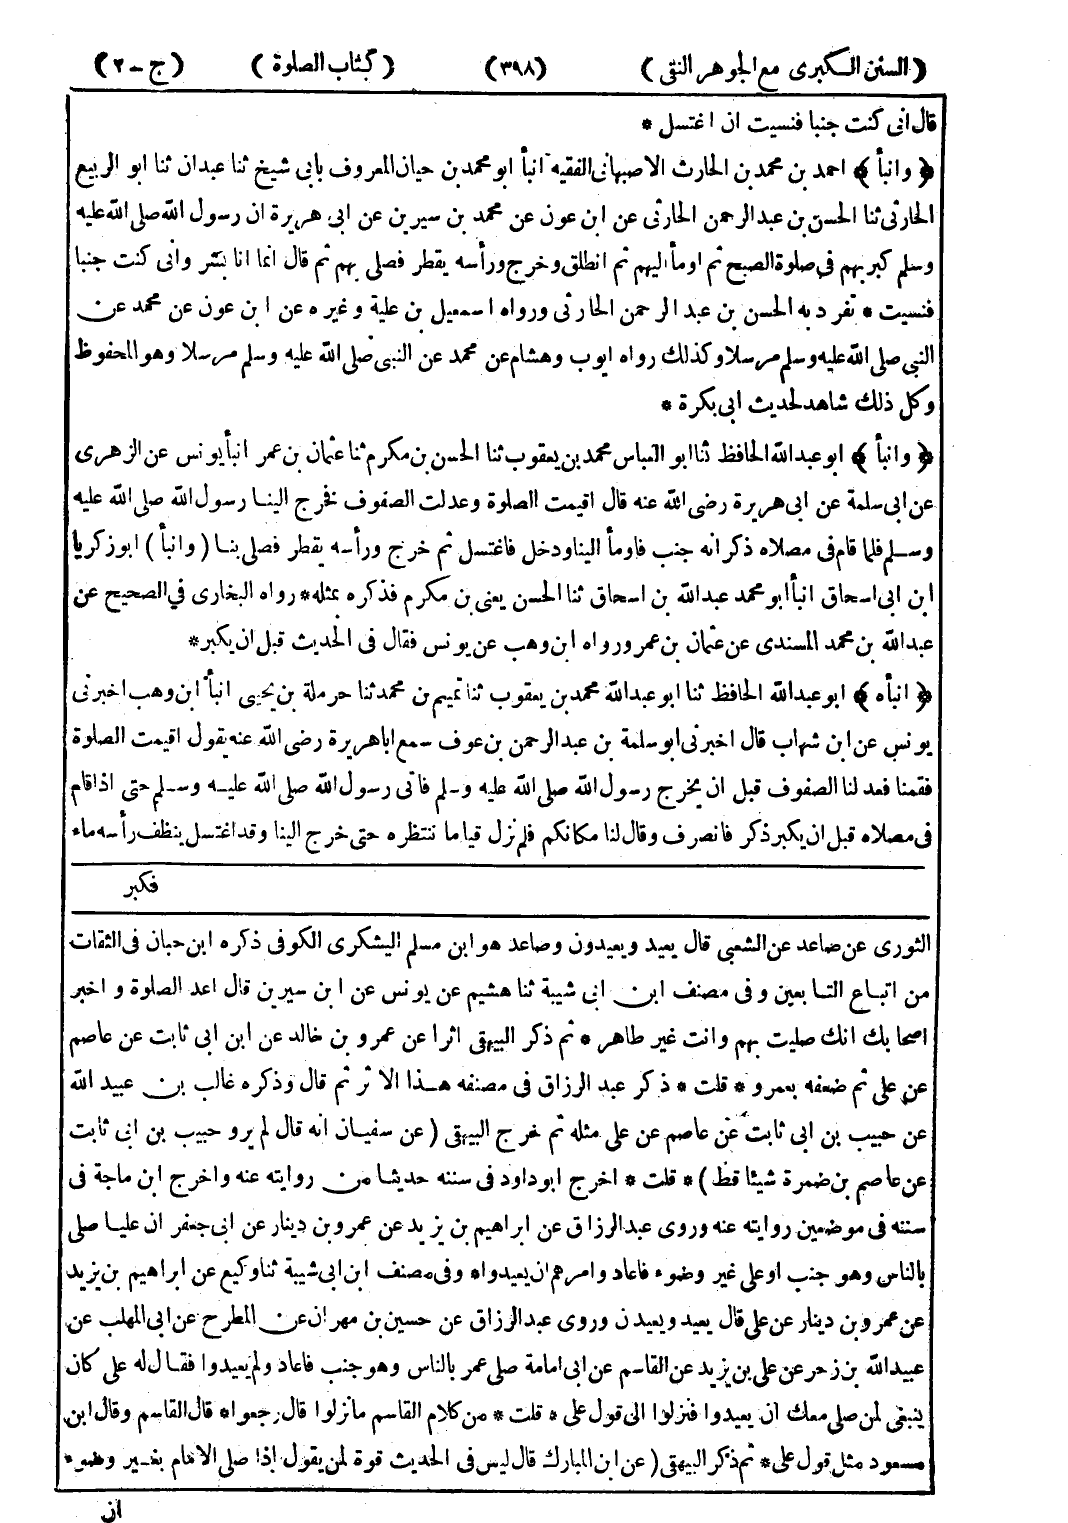 (السنن الكبرى مع الجوهر النقى) (٣٩٨) (كتاب الصلوة) (ج-٢)
قال انى كنت جنبا فنسيت ان اغتسل *
﴿ وانبأ ﴾ احمد بن محمد بن الحارث الاصبهانى الفقيه انبأ ابو محمد بن حيان المعروف بابى شيخ ثنا عبدان ثنا ابو الربيع
الحارثى ثنا الحسن بن عبد الرحمن الحارثى عن ابن عون عن محمد بن سيرين عن ابى هريرة ان رسول الله صلى الله عليه
وسلم كبر بهم فى صلوة الصبح ثم اومأ اليهم ثم انطلق وخرج ورأسه يقطر فصلى بهم ثم قال انما انا بشر وانى كنت جنبا
فنسيت * تفرد به الحسن بن عبد الرحمن الحارثى ورواه اسمعيل بن علية وغيره عن ابن عون عن محمد عن
النبى صلى الله عليه وسلم مرسلا وكذلك رواه ايوب وهشام عن محمد عن النبى صلى الله عليه وسلم مرسلا وهو المحفوظ
وكل ذلك شاهد لحديث ابى بكرة *
﴿ وانبأ ﴾ ابو عبد الله الحافظ ثنا ابو العباس محمد بن يعقوب ثنا الحسن بن مكرم ثنا عثمان بن عمر انبأ يونس عن الزهرى
عن ابى سلمة عن ابى هريرة رضى الله عنه قال اقيمت الصلوة وعدلت الصفوف فخرج الينا رسول الله صلى الله عليه
وسلم فلما قام فى مصلاه ذكر انه جنب فاومأ الينا ودخل فاغتسل ثم خرج ورأسه يقطر فصلى بنا (وانبأ) ابو زكريا
ابن ابى اسحاق انبأ ابو محمد عبد الله بن اسحاق ثنا الحسن يعنى بن مكرم فذكره بمثله * رواه البخارى في الصحيح عن
عبد الله بن محمد المسندى عن عثمان بن عمر ورواه ابن وهب عن يونس فقال فى الحديث قبل ان يكبر *
﴿ انبأه ﴾ ابو عبد الله الحافظ ثنا ابو عبد الله محمد بن يعقوب ثنا تميم بن محمد ثنا حرملة بن يحيى انبأ ابن وهب اخبرنى
يونس عن ابن شهاب قال اخبرنى ابو سلمة بن عبد الرحمن بن عوف سمع ابا هريرة رضى الله عنه يقول اقيمت الصلوة
فقمنا فعد لنا الصفوف قبل ان يخرج رسول الله صلى الله عليه وسلم فاتى رسول الله صلى الله عليه وسلم حتى اذا قام
فى مصلاه قبل ان يكبر ذكر فانصرف وقال لنا مكانكم فلم نزل قياما ننتظره حتى خرج الينا وقد اغتسل ينطف رأسه ماء
فكبر
الثورى عن صاعد عن الشعبى قال يعيد ويعيدون وصاعد هو ابن مسلم اليشكرى الكوفى ذكره ابن حبان فى الثقات
من اتباع التابعين وفى مصنف ابن ابى شيبة ثنا هشيم عن يونس عن ابن سيرين قال اعد الصلوة واخبر
اصحابك انك صليت بهم وانت غير طاهر * ثم ذكر البيهقى اثرا عن عمرو بن خالد عن ابن ابى ثابت عن عاصم
عن على ثم ضعفه بعمرو * قلت * ذكر عبد الرزاق فى مصنفه هذا الاثر ثم قال وذكره غالب بن عبيد الله
عن حبيب بن ابى ثابت عن عاصم عن على مثله ثم خرج البيهقى (عن سفيان انه قال لم يرو حبيب بن ابى ثابت
عن عاصم بن ضمرة شيئا قط) * قلت * اخرج ابو داود فى سننه حديثا من روايته عنه واخرج ابن ماجة فى
سننه فى موضعين روايته عنه وروى عبد الرزاق عن ابراهيم بن يزيد عن عمرو بن دينار عن ابى جعفر ان عليا صلى
بالناس وهو جنب او على غير وضوء فاعاد وامرهم ان يعيدوا * وفى مصنف ابن ابى شيبة ثنا وكيع عن ابراهيم بن يزيد
عن عمرو بن دينار عن على قال يعيد ويعيدن وروى عبد الرزاق عن حسين بن مهران عن المطرح عن ابى المهلب عن
عبيد الله بن زحر عن على بن يزيد عن القاسم عن ابى امامة صلى عمر بالناس وهو جنب فاعاد ولم يعيدوا فقال له على كان
ينبغى لمن صلى معك ان يعيدوا فنزلوا الى قول على * قلت * من كلام القاسم مانزلوا قال رجعوا * قال القاسم وقال ابن
مسعود مثل قول على * ثم ذكر البيهقى (عن ابن المبارك قال ليس فى الحديث قوة لمن يقول اذا صلى الامام بغير وضوء
ان